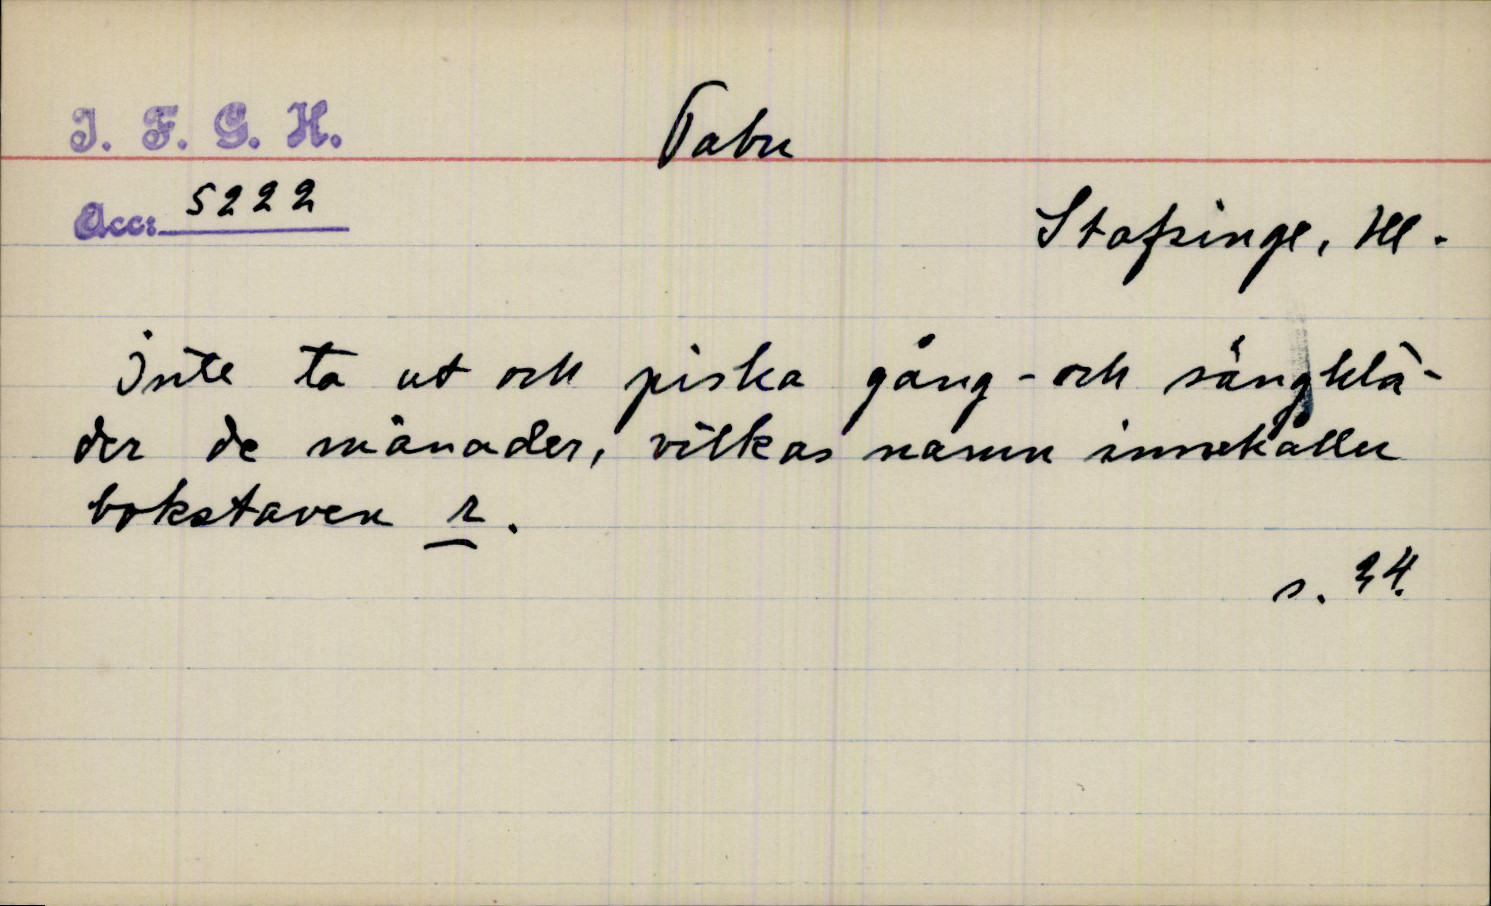 I. F. G. H.
Tabu
Acc: 5222
Stafsinge, Hl.
Inte ta ut och piska gång- och sängklä-
der de månader, vilkas namn innehåller
bokstaven r.
s. 34.